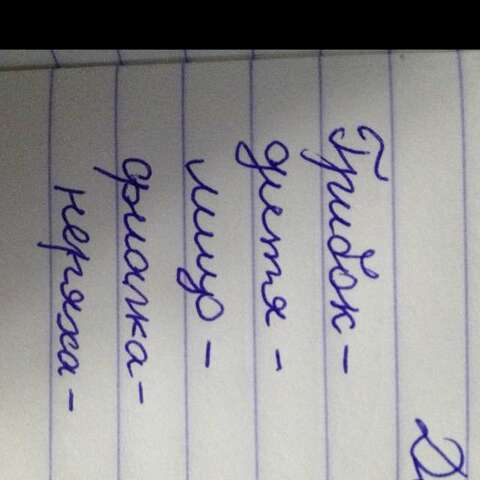 Грибок -
дитя -
мир -
фиалка -
неряха -